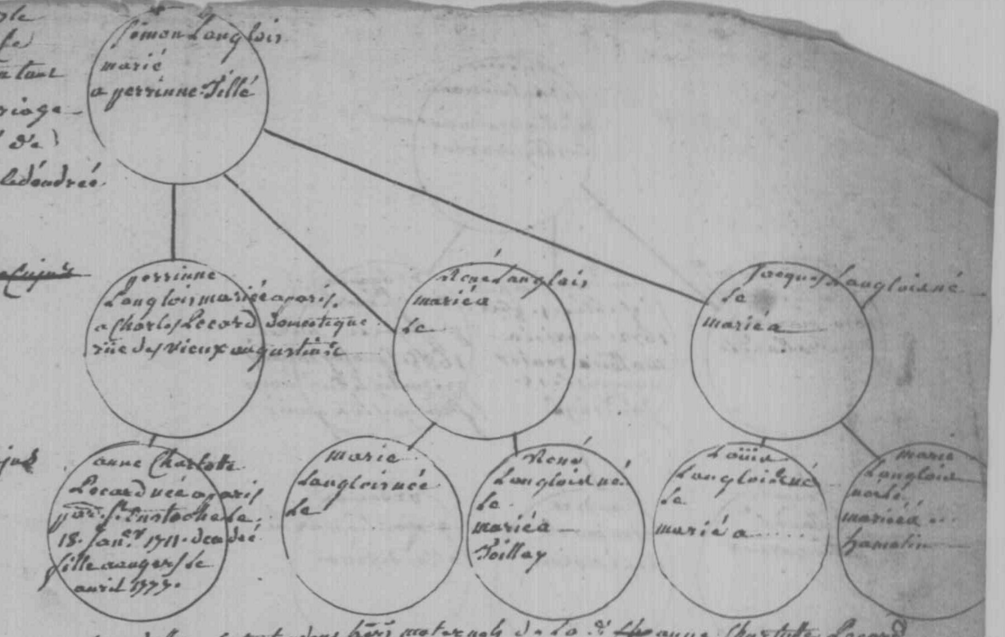 Simon Langlois
marié
a perrinne Tillé
riage
de
perrinne
Langlois mariée a paris
a Charles Lecord Domestique
rüe des Vieux augustins
René Langlois
marié a
Le
Jacques Langlois né
Le
marié a
anne Charlotte
Lecord née a paris
par. St. Eustache Le
18. Janer. 1711. décedée
fille a angers le
avril 1775.
marie
Langlois née
Le
René
Langlois né
Le
marié a
Toillay
Loüis
Langlois né
Le
marié a
marie
Langlois
mariée a
hamelin
maternels de La anne Charlotte Lecord